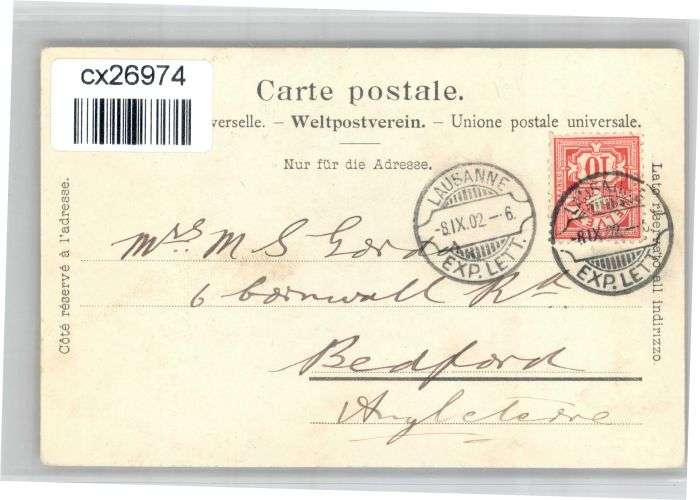 cx26974
Carte postale.
verselle. — Weltpostverein. — Unione postale universale.
Nur für die Adresse.
Côté réservé à l'adresse.
Lato riservato all indirizzo
LAUSANNE
-8.IX.02-6.
EXP. LETT.
10
-8.IX.02-
EXP. LETT.
Mrs M S Gordon
6 Cornwall Rd
Bedford
Angleterre